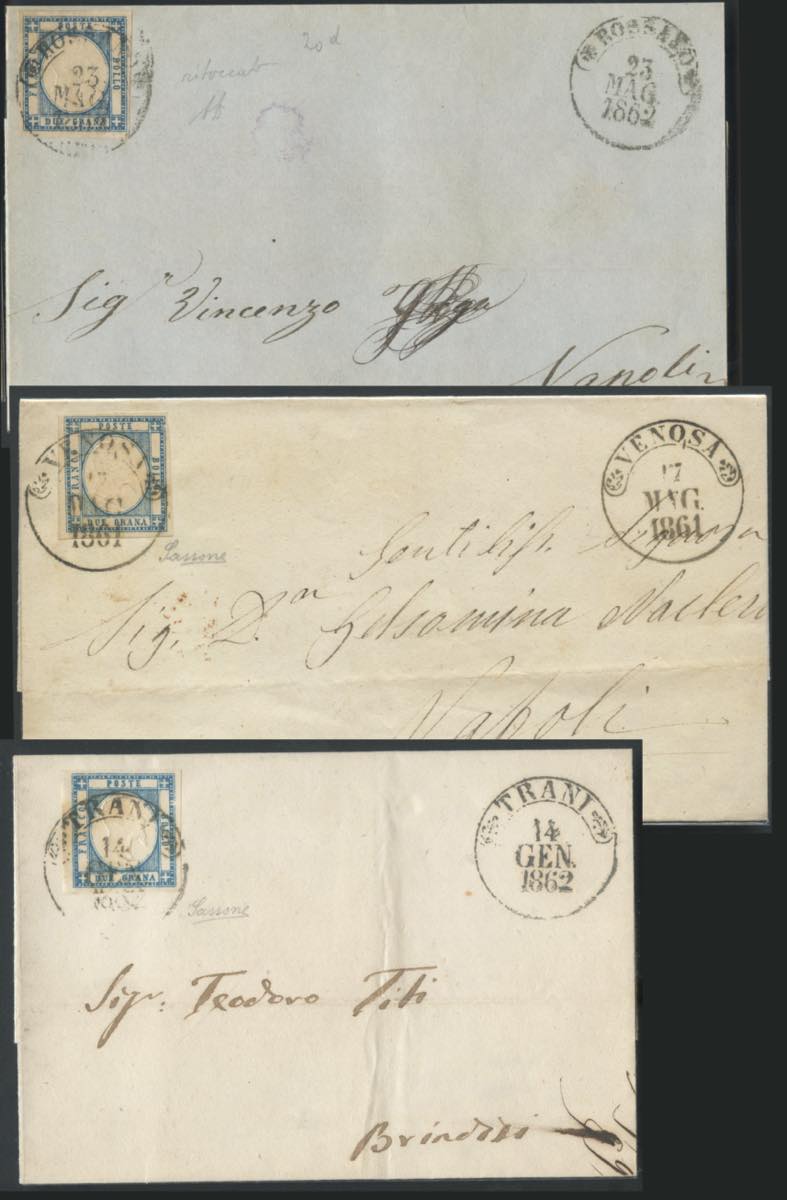 POSTE
BOLLO
DUE GRANA
23
MAG
ritoccato
20d
ROSSANO
23
MAG.
1862
Sigr Vincenzo
Napoli
POSTE
FRANCO
BOLLO
DUE GRANA
VENOSA
17
MAG.
1861
Sassone
VENOSA
17
MAG.
1861
Gentiliss. Signora
Sig. Dn Gelsomina
Napoli
POSTE
DUE GRANA
TRANI
14
1862
Sassone
TRANI
14
GEN.
1862
Sigr: Teodoro Titi
Brindisi